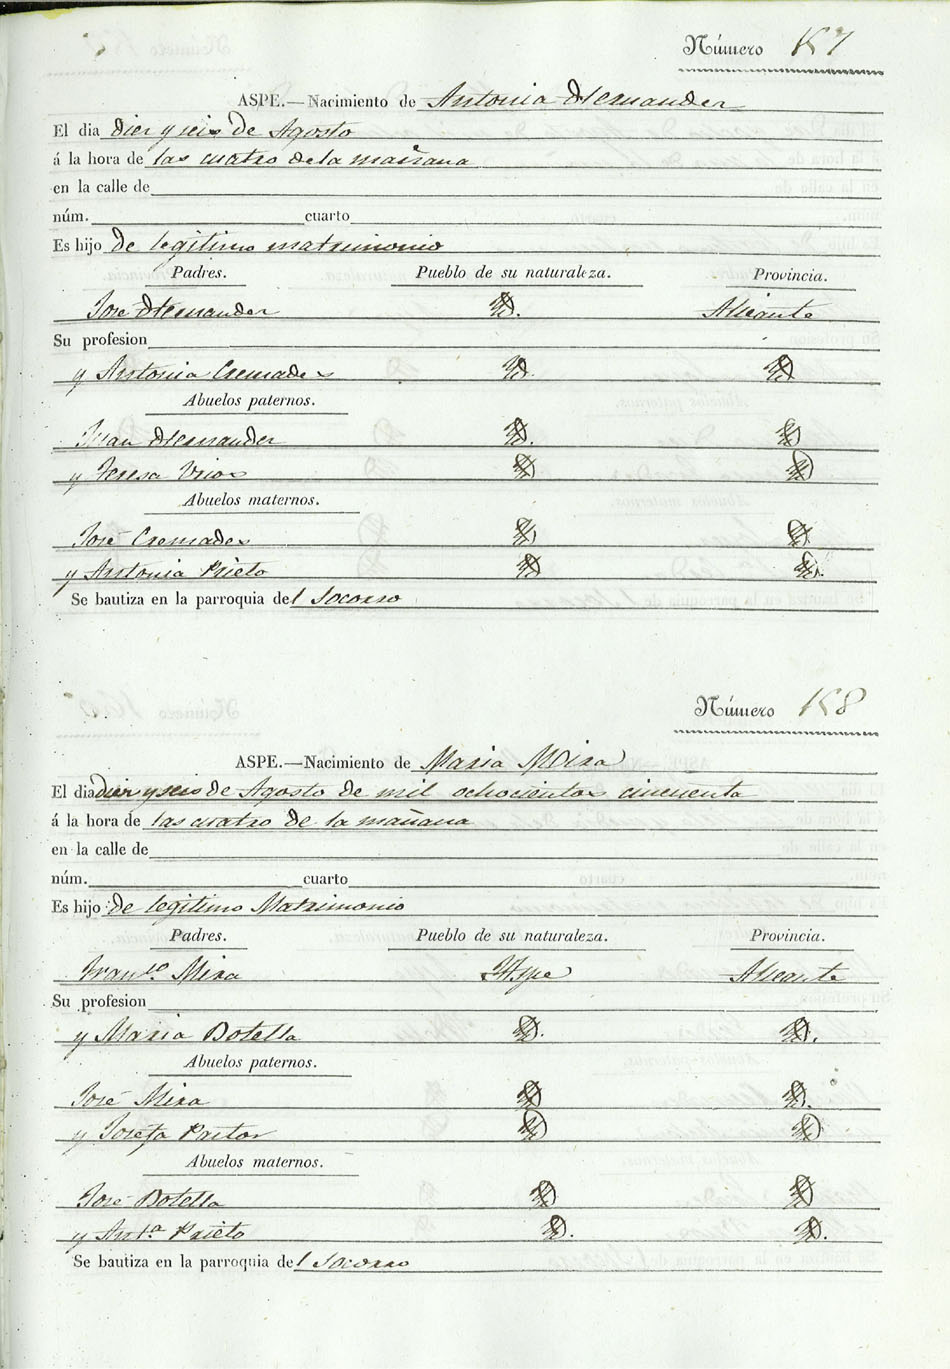 Número 187
ASPE.—Nacimiento de Antonia Hernander
El dia dier y seis de Agosto
á la hora de las cuatro de la mañana
en la calle de
núm. cuarto
Es hijo de legitimo matrimonio
Padres. Pueblo de su naturaleza. Provincia.
José Hernander Alicante
Su profesion
y Antonia Cremades
Abuelos paternos.
Juan Hernander
y Teresa
Abuelos maternos.
José Cremades
y Antonia Prieto
Se bautiza en la parroquia del Socorro
Número 188
ASPE.—Nacimiento de Maria Mira
El dia dier y seis de Agosto de mil ochocientos cincuenta
á la hora de las cuatro de la mañana
en la calle de
núm. cuarto
Es hijo de legitimo Matrimonio
Padres. Pueblo de su naturaleza. Provincia.
Franco Mira Aspe Alicante
Su profesion
y Maria Botella
Abuelos paternos.
José Mira
y Josefa Pastor
Abuelos maternos.
José Botella
y Anta Prieto
Se bautiza en la parroquia del Socorro